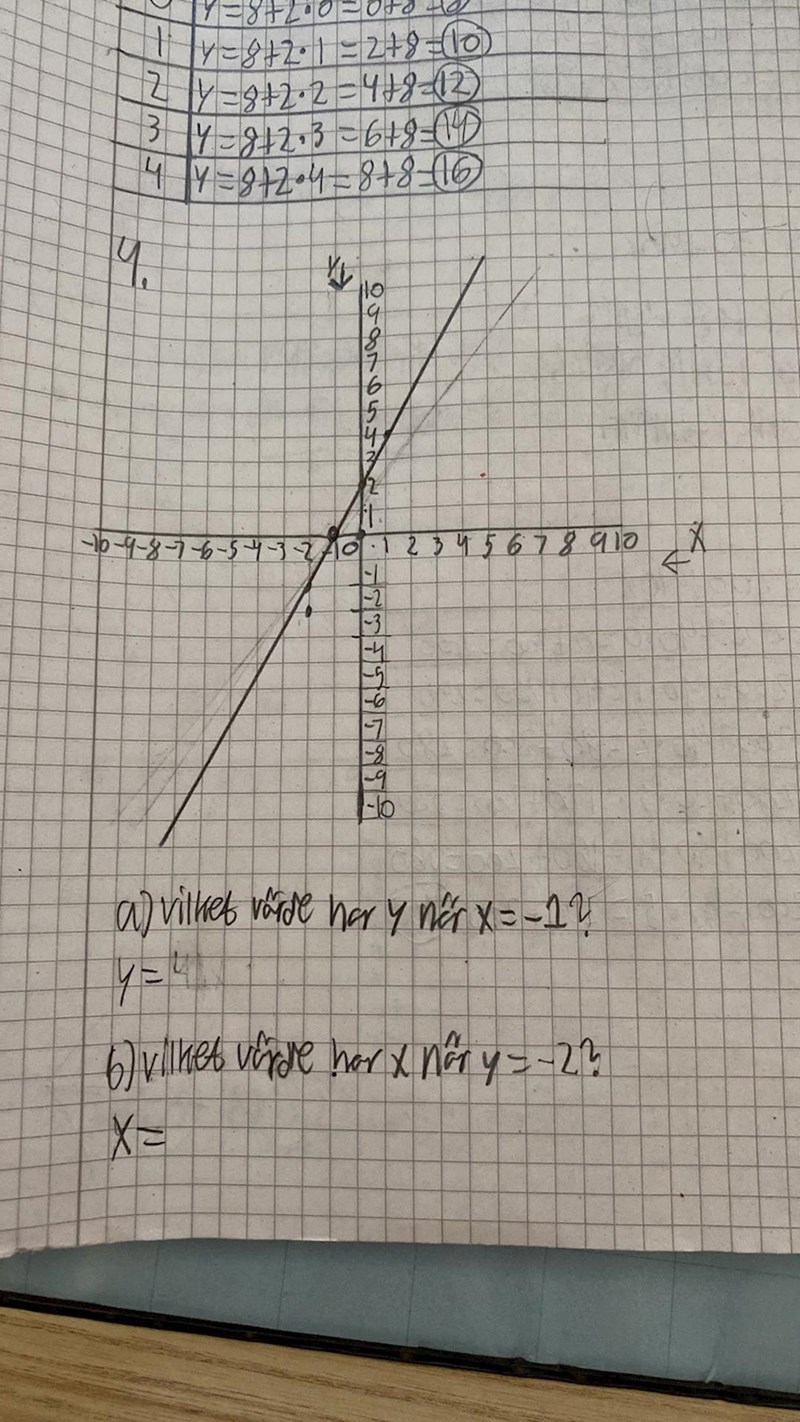 y=8+2·0=0+8=8
1 y=8+2·1=2+8=10
2 y=8+2·2=4+8=12
3 y=8+2·3=6+8=14
4 y=8+2·4=8+8=16
4.
y
10
9
8
7
6
5
4
3
2
1
-10 -9 -8 -7 -6 -5 -4 -3 -2 -1 0 1 2 3 4 5 6 7 8 9 10 X
-1
-2
-3
-4
-5
-6
-7
-8
-9
-10
a) vilket värde har y när x=-1?
y=
b) vilket värde har x når y=-2?
X=